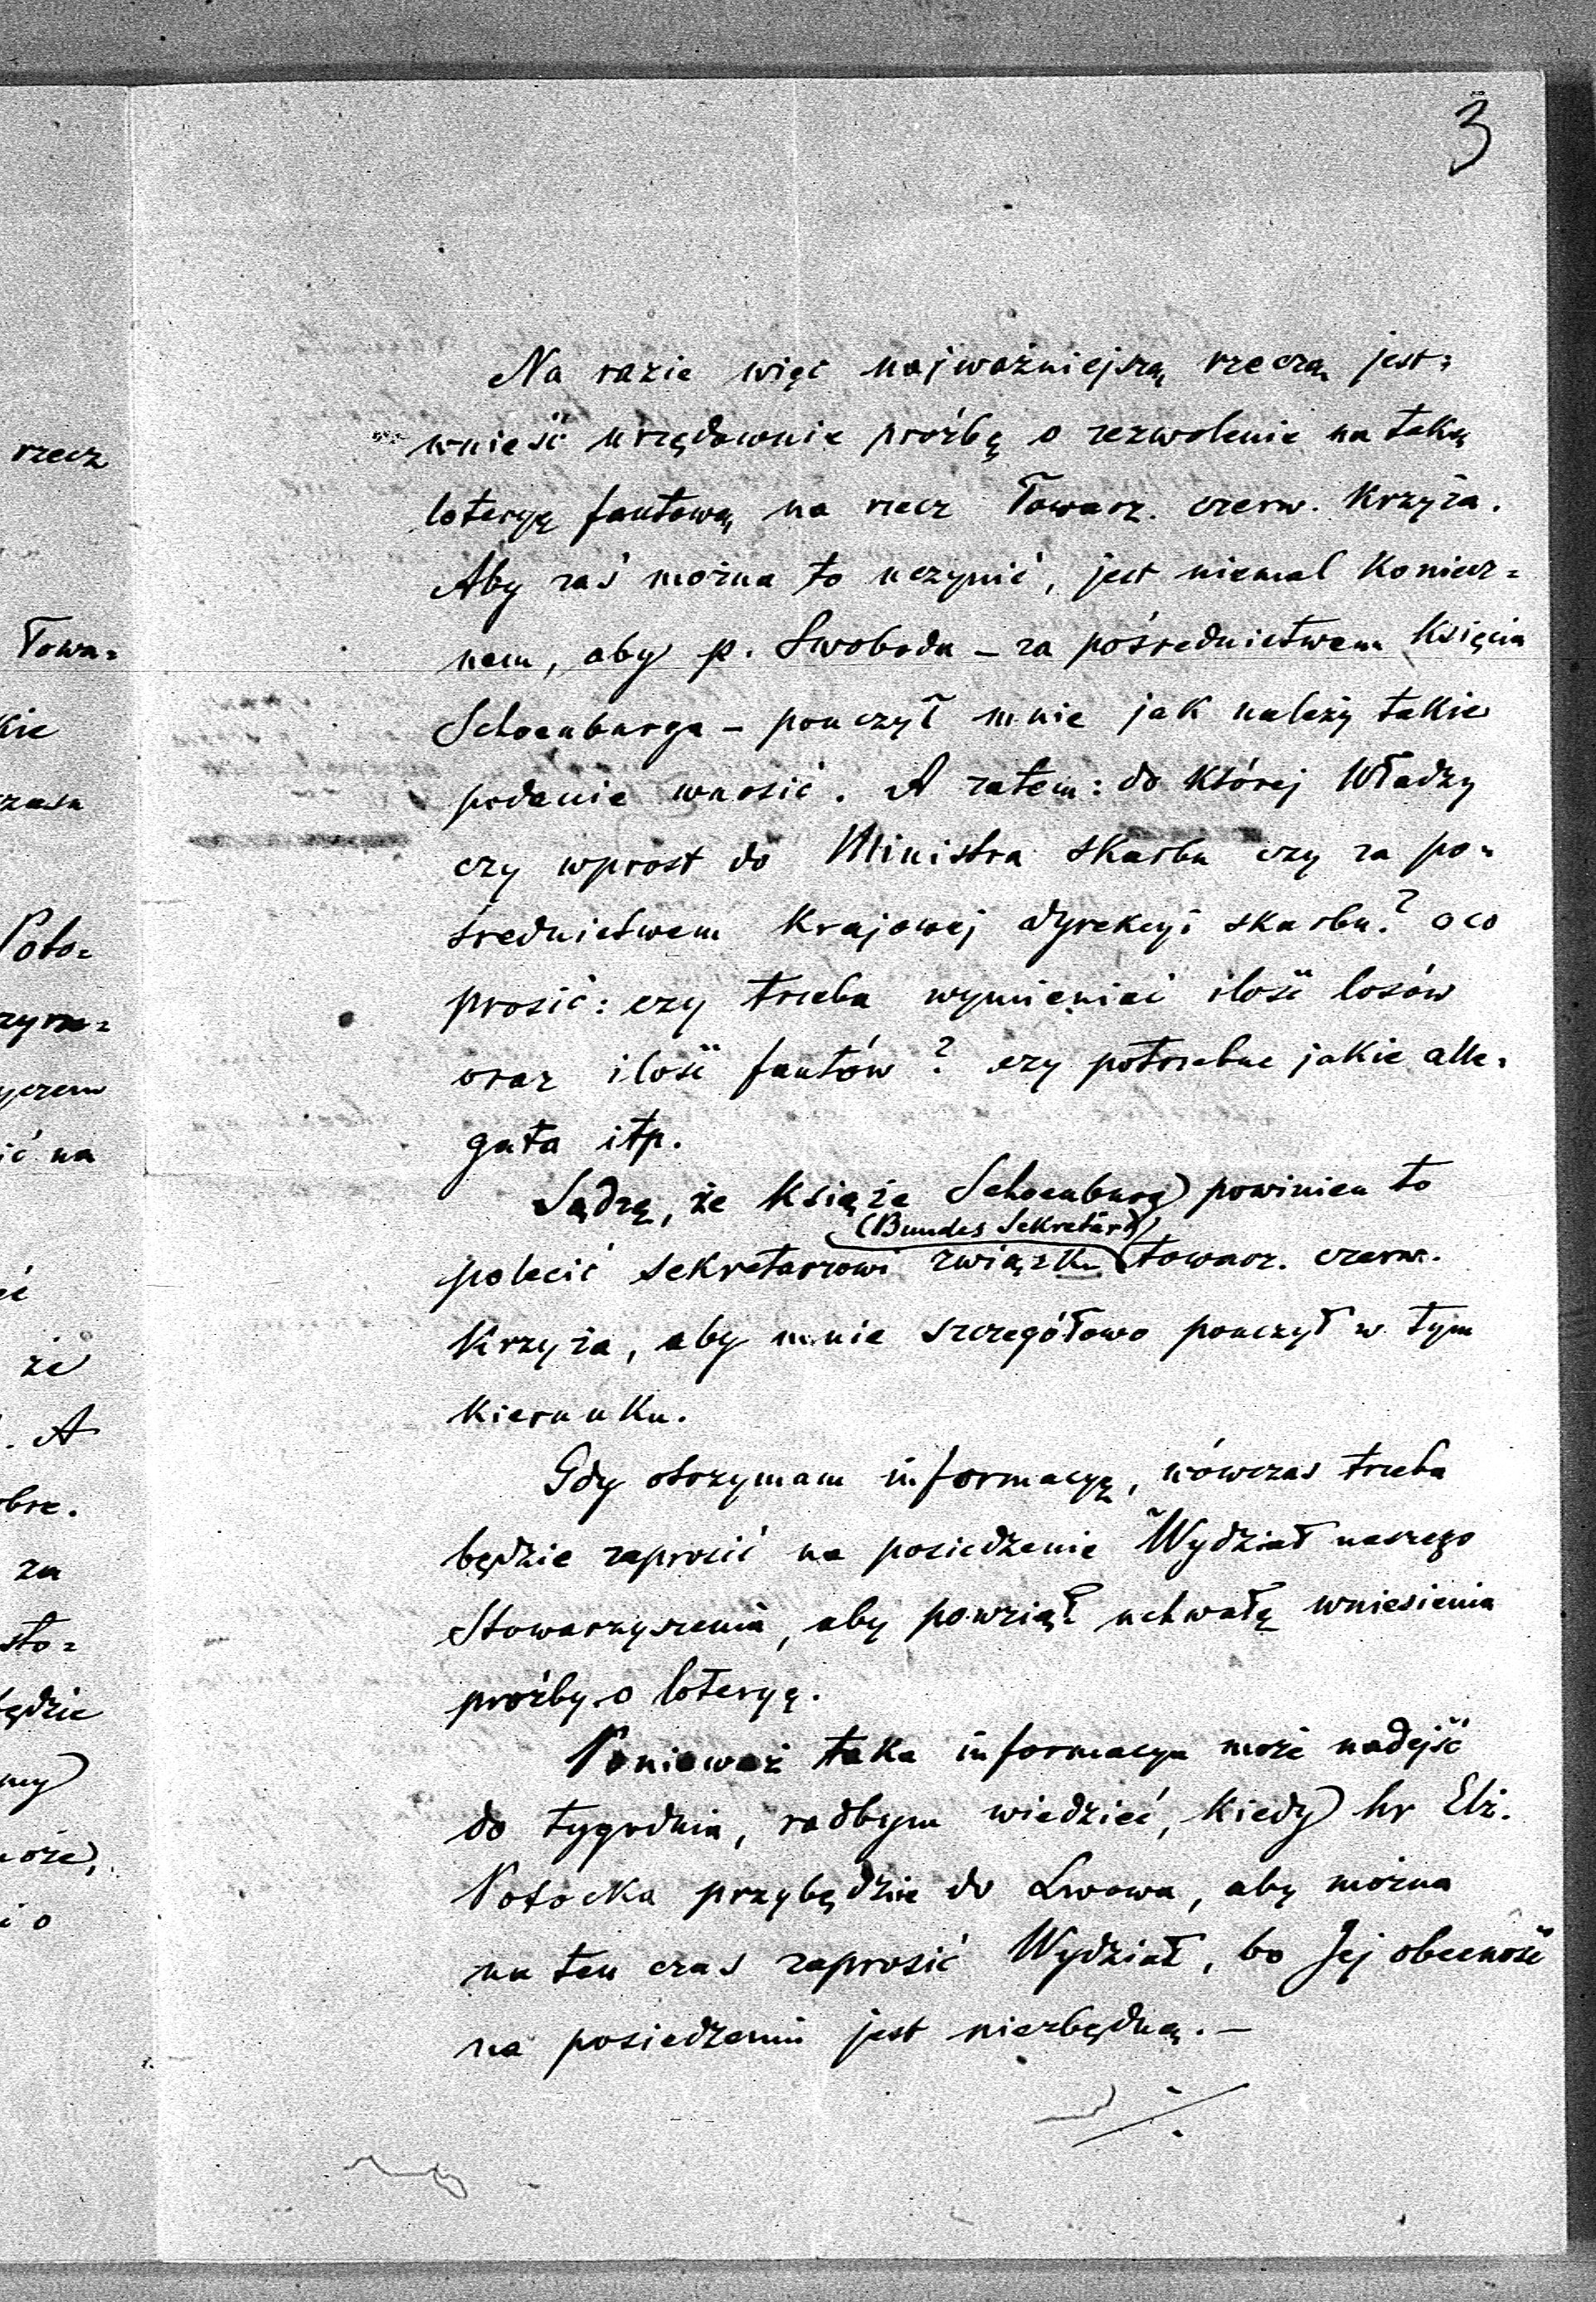 3
Na razie więc najważniejszą rzeczą jest:
wnieść urzędownie prośbę o zezwolenie na taką
loteryę fantową na rzecz Towarz. czerw. Krzyża.
Aby zaś można to uczynić, jest niemal koniecz=
nem, aby p. Swoboda – za pośrednictwem Księcia
Schoenburga – pouczył mnie jak należy takie
podanie wnosić. A zatem: do której Władzy
czy wprost do Ministra skarbu czy za po=
średnictwem Krajowej dyrekcyi skarbu? o co
prosić: czy trzeba wymieniać ilość losów
oraz ilość fantów? czy potrzebne jakie alle=
gata itp.
Sądzę, że Książe Schoenburg powinien to
(Bundes Sekretär)
polecić sekretarzowi związku towarz. czerw.
Krzyża, aby mnie szczegółowo pouczył w tym
kierunku.
Gdy otrzymam informacyę, wówczas trzeba
będzie zaprosić na posiedzenie Wydział naszego
Stowarzyszenia, aby powziął uchwałę wniesienia
prośby o loteryę.
Ponieważ taka informacya może nadejść
do tygodnia, radbym wiedzieć, kiedy hr Elż.
Potocka przybędzie do Lwowa, aby można
na ten czas zaprosić Wydział, bo Jej obecność
na posiedzeniu jest niezbędną. –
rzecz
Towa=
kie
czasu
Poto=
czerw
ić na
że
. A
obre.
za
sto=
będzie
może,
i o